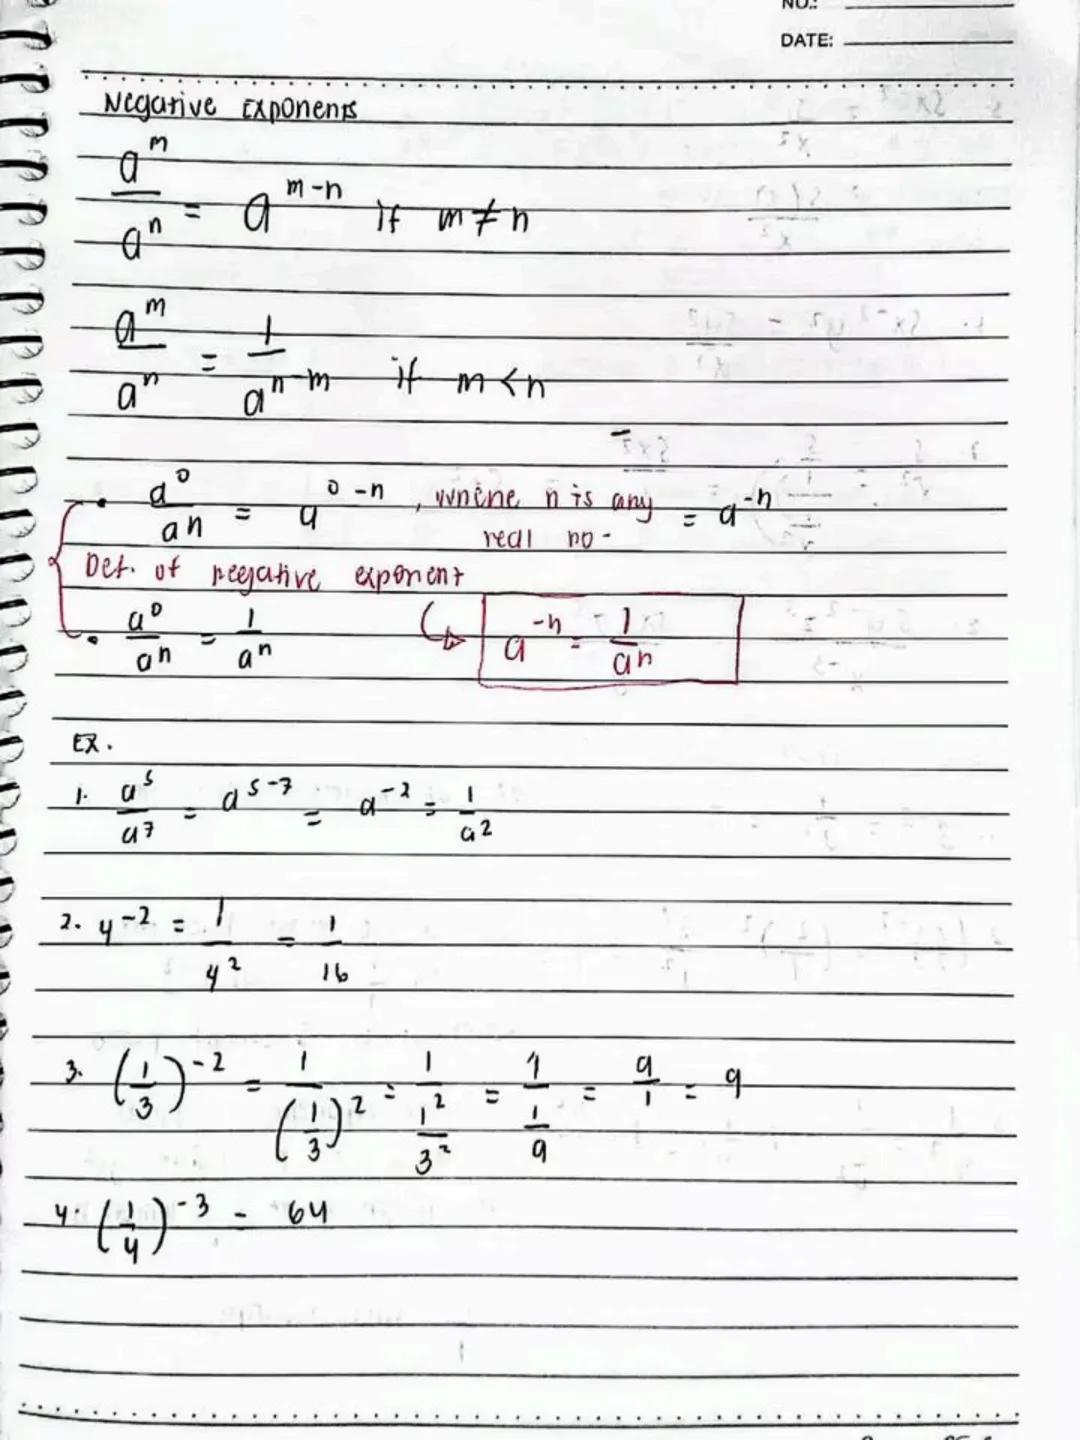 NO.:
DATE:
Negative Exponents
a^m / a^n = a^(m-n) if m ≠ n
a^m / a^n = 1 / a^(n-m) if m < n
• a^0 / a^n = a^(0-n), where n is any real no. = a^(-n)
Def. of negative exponent
• a^0 / a^n = 1 / a^n ↳ a^(-n) = 1 / a^n
Ex.
1. a^5 / a^7 = a^(5-7) = a^(-2) = 1 / a^2
2. 4^(-2) = 1 / 4^2 = 1 / 16
3. (1/3)^(-2) = 1 / (1/3)^2 = 1 / (1^2 / 3^2) = 1 / (1/9) = 9/1 = 9
4. (1/4)^(-3) = 64